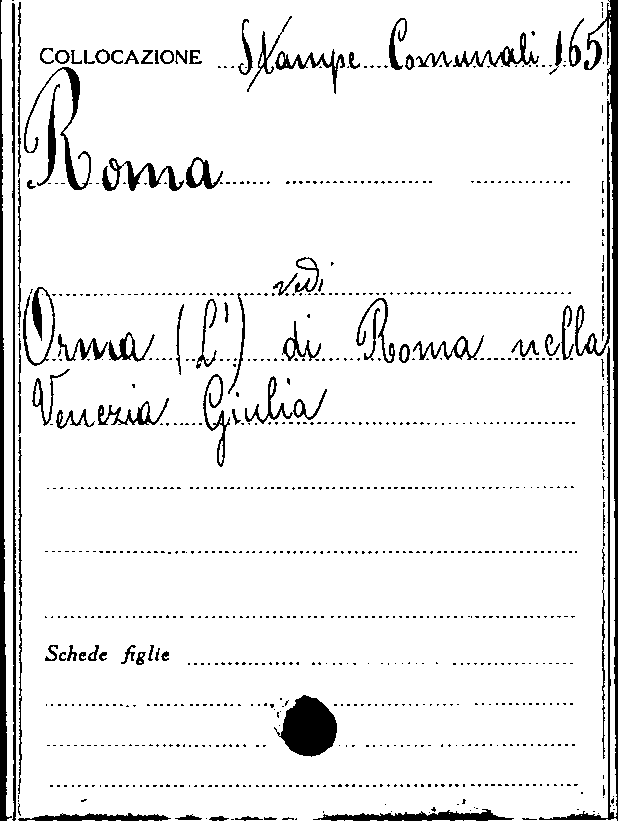 COLLOCAZIONE Stampe Comunali 165
Roma
vedi
Orma (L') di Roma nella
Venezia Giulia
Schede figlie